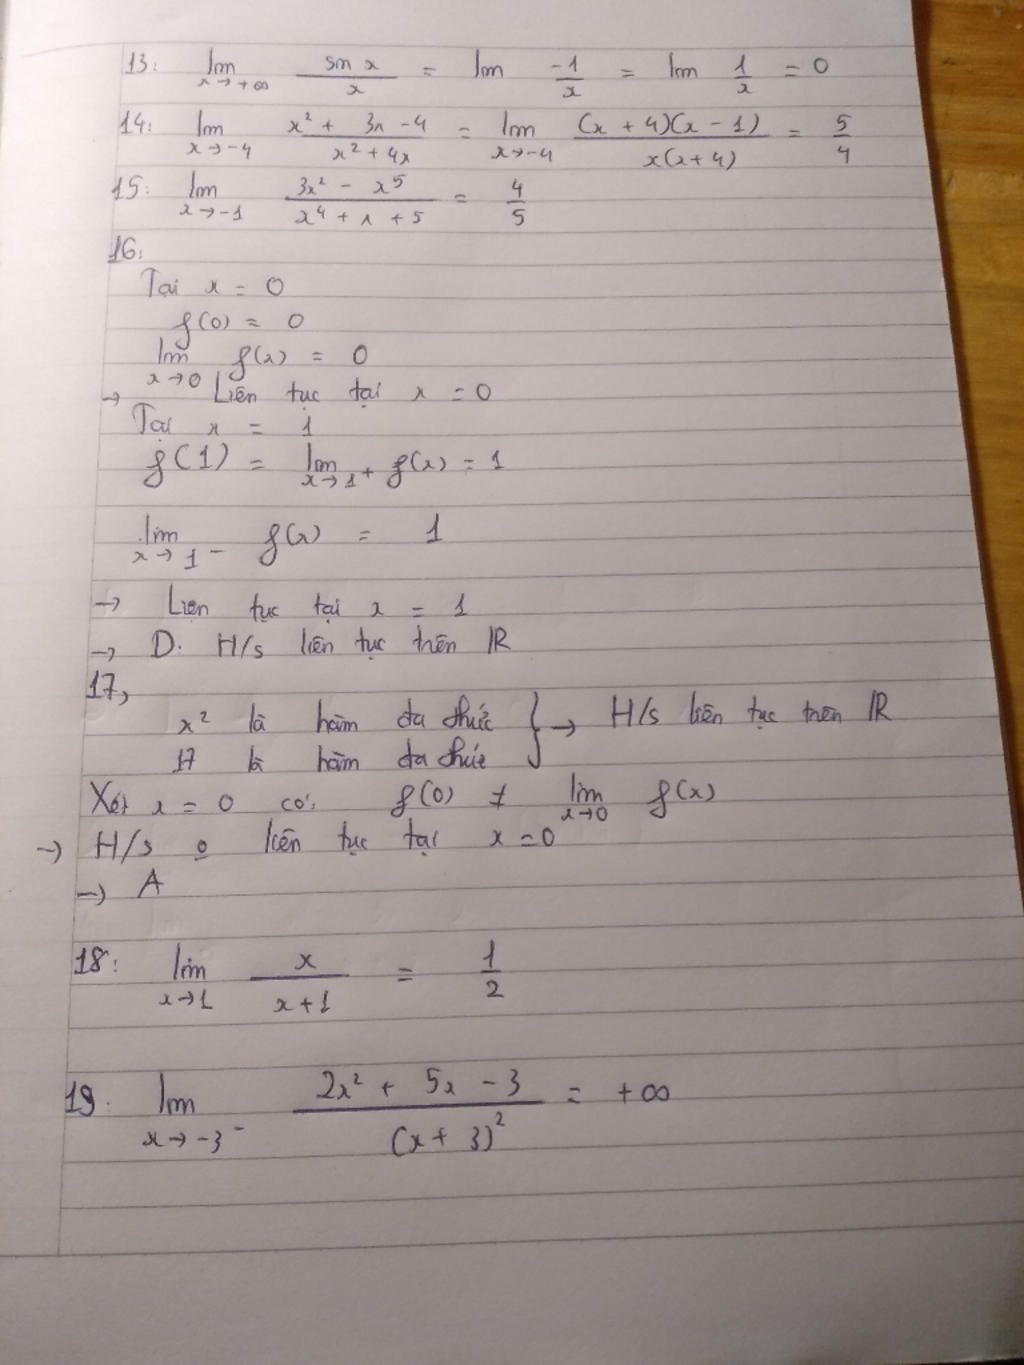 13: lim x→+∞ sin x / x = lim -1/x = lim 1/x = 0
14: lim x→-4 (x² + 3x - 4)/(x² + 4x) = lim x→-4 (x + 4)(x - 1)/x(x+4) = 5/4
15: lim x→-1 (3x² - x⁵)/(x⁴ + x + 5) = 4/5
16:
Tại x = 0
f(0) = 0
lim x→0 f(x) = 0
→ Liên tục tại x = 0
Tại x = 1
f(1) = lim x→1⁺ f(x) = 1
lim x→1⁻ f(x) = 1
→ Liên tục tại x = 1
→ D. H/s liên tục trên ℝ
17,
x² là hàm đa thức } → H/s liên tục trên ℝ
17 là hàm đa thức
Xét x = 0 có: f(0) ≠ lim x→0 f(x)
→ H/s o liên tục tại x = 0
→ A
18: lim x→1 x/(x+1) = 1/2
19: lim x→-3⁻ (2x² + 5x - 3)/(x + 3)² = +∞